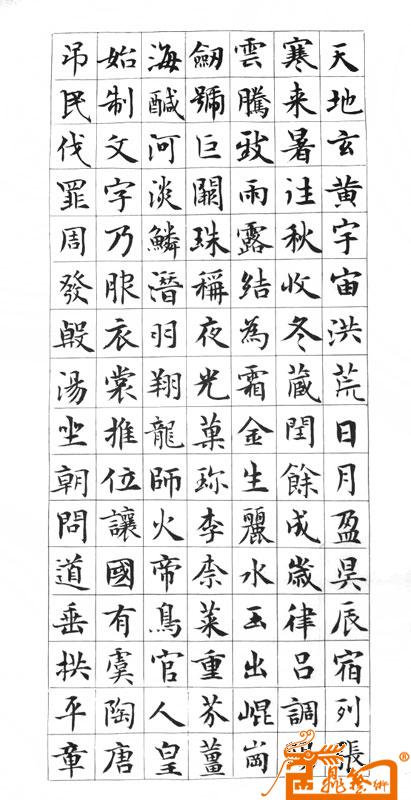 天地玄黄宇宙洪荒日月盈昃辰宿列張
寒来暑往秋收冬藏閏餘成歲律吕調
雲騰致雨露結為霜金生麗水玉出崐崗
劒號巨闕珠稱夜光菓珍李柰菜重芥薑
海醎河淡鱗潛羽翔龍師火帝鳥官人皇
始制文字乃服衣裳推位讓國有虞陶唐
吊民伐罪周發殷湯坐朝問道垂拱平章